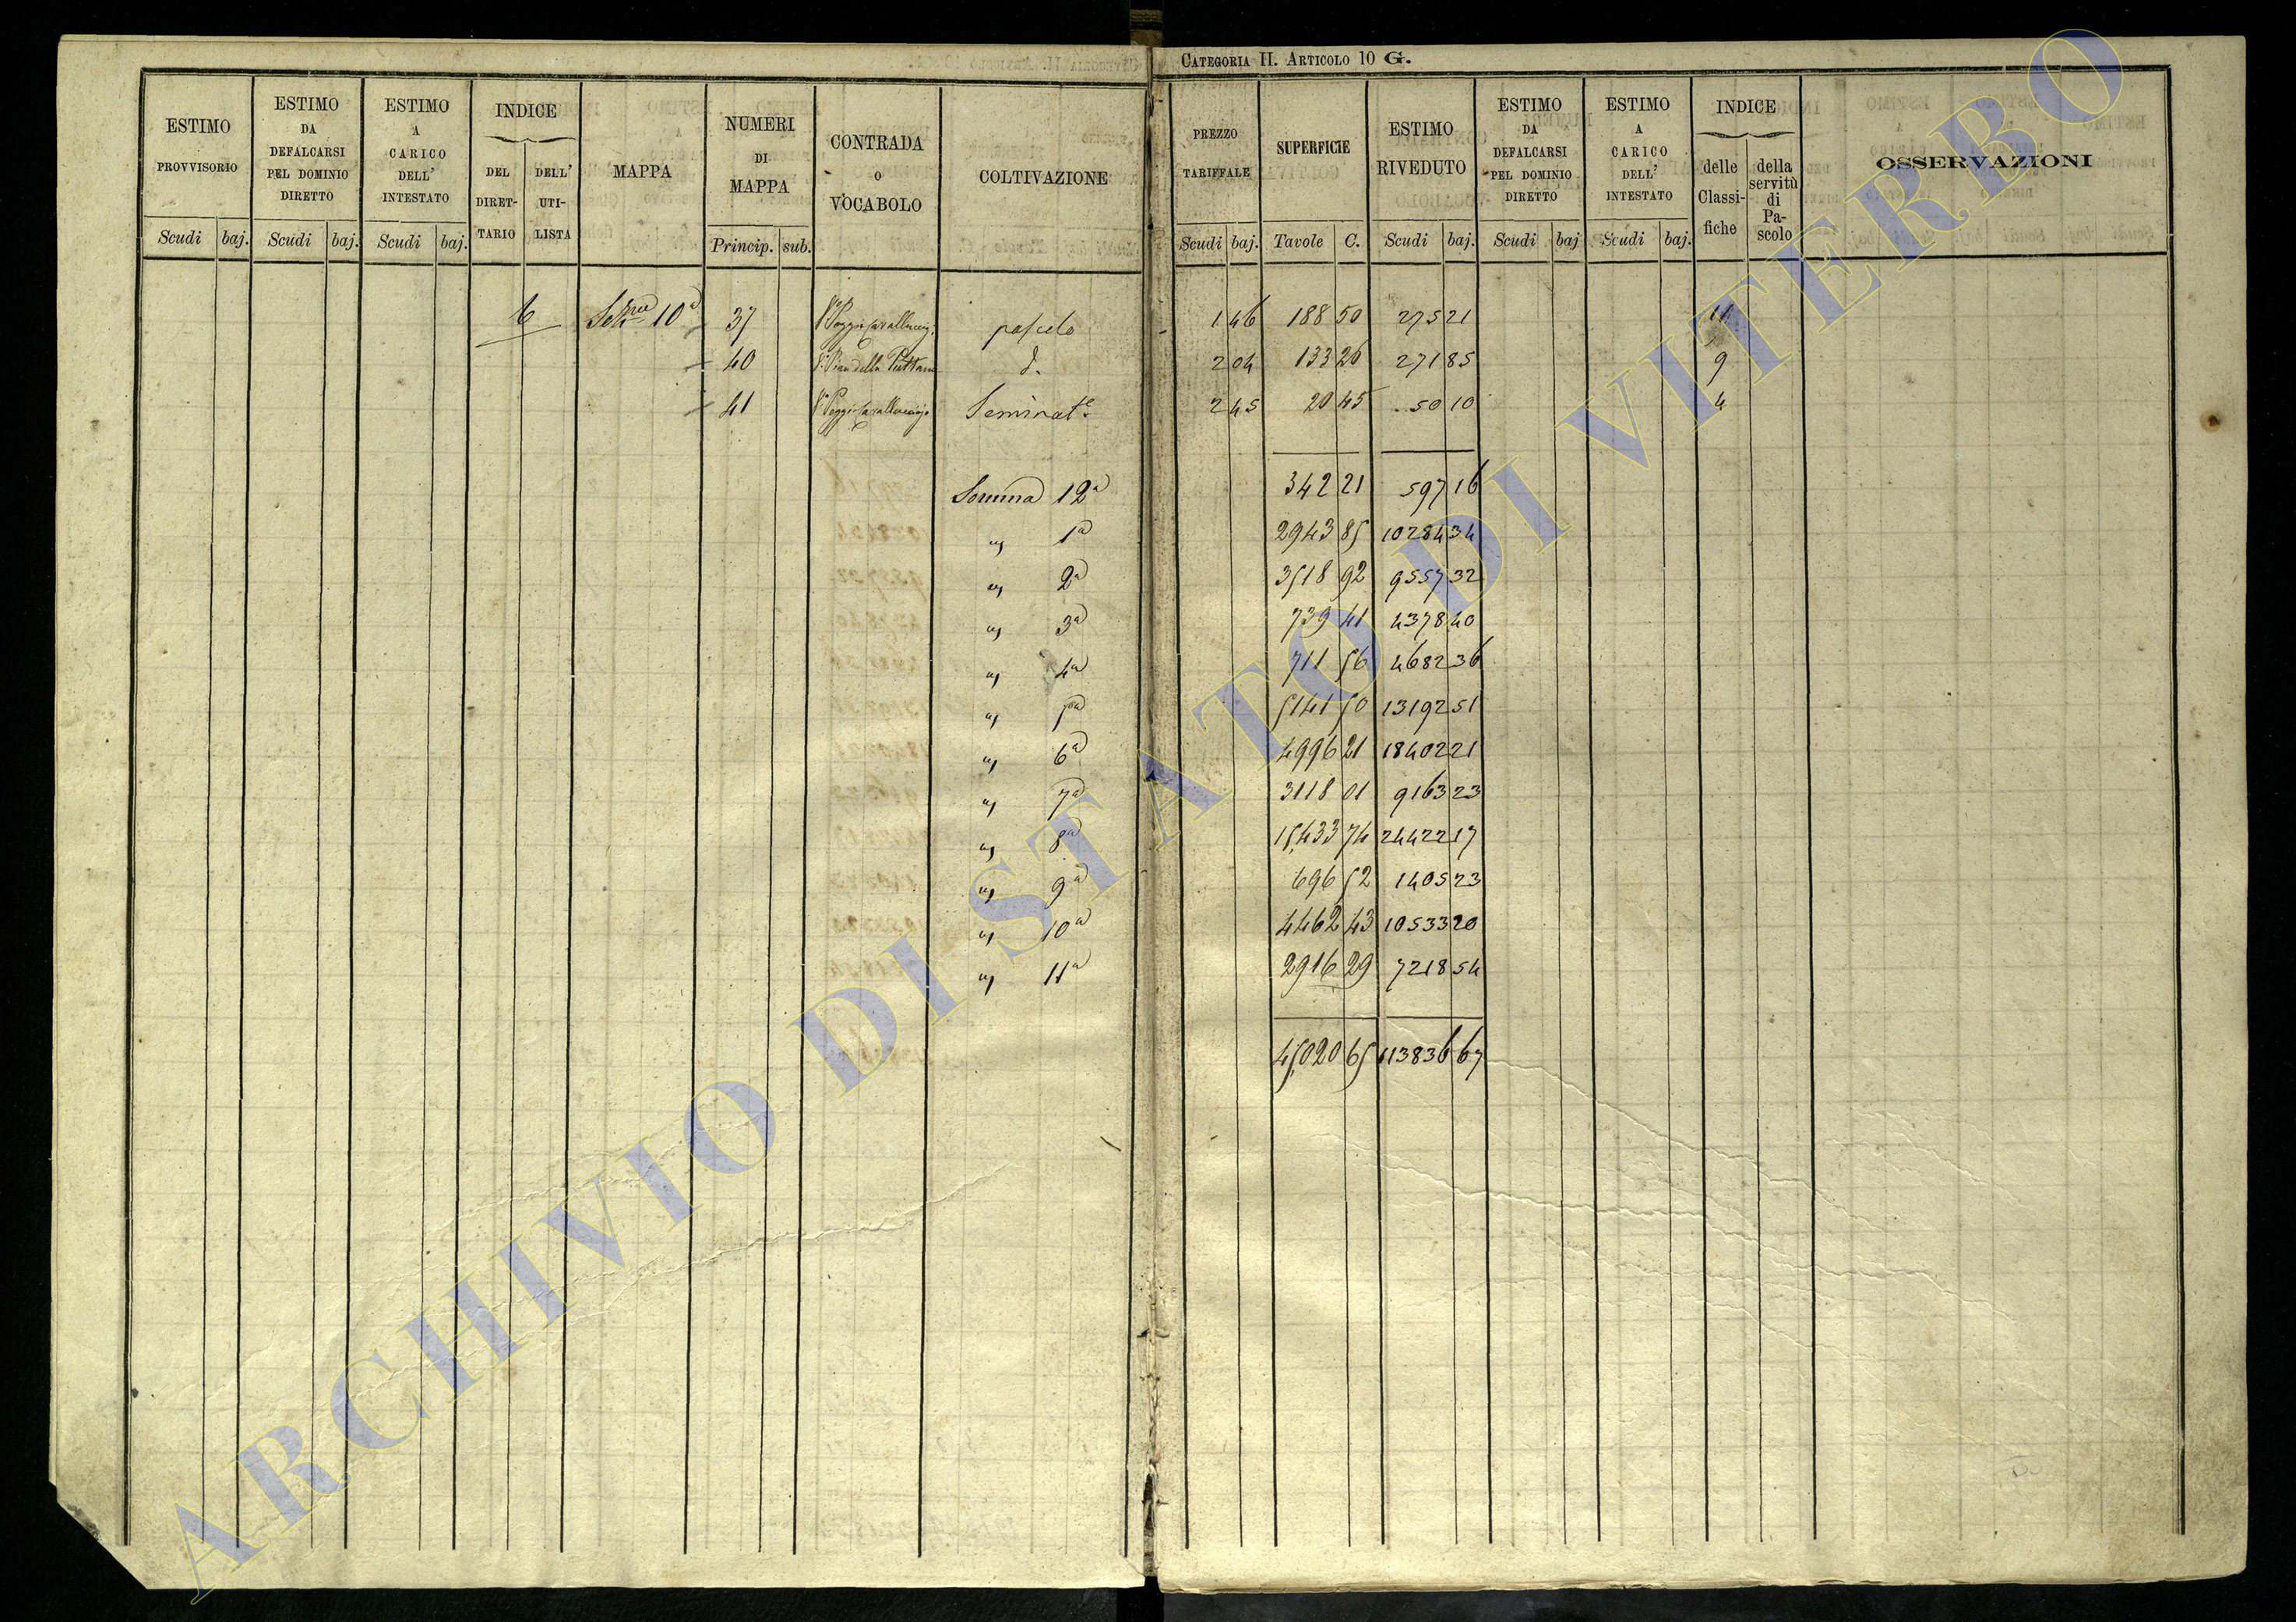 CATEGORIA II. ARTICOLO 10 G.
ESTIMO PROVVISORIO
ESTIMO DA DEFALCARSI PEL DOMINIO DIRETTO
ESTIMO A CARICO DELL' INTESTATO
INDICE
DEL DIRET-TARIO
DELL' UTI-LISTA
MAPPA
NUMERI DI MAPPA
CONTRADA O VOCABOLO
COLTIVAZIONE
Scudi baj. Scudi baj. Scudi baj. Princip. sub.
PREZZO TARIFFALE
SUPERFICIE
ESTIMO RIVEDUTO
ESTIMO DA DEFALCARSI PEL DOMINIO DIRETTO
ESTIMO A CARICO DELL' INTESTATO
INDICE
delle Classi-fiche
della servitù di Pa-scolo
OSSERVAZIONI
Scudi baj. Tavole C. Scudi baj. Scudi baj Scudi baj.
6 10ª 37 pascolo 1 46 188 50 275 21
40 d. 2 04 133 26 271 85 9
41 Seminat.e 2 45 20 45 50 10 4
Somma 12ª 342 21 597 16
" 1ª 2943 85 10284 34
" 2ª 3518 92 9557 32
" 3ª 739 41 4378 40
" 4ª 711 56 4682 36
" 5ª 5141 50 13192 51
" 6ª 4996 21 18402 21
" 7ª 3118 01 9163 23
" 8ª 15433 74 24422 17
" 9ª 696 52 1405 23
" 10ª 4462 43 10533 20
" 11ª 2916 29 7218 54
45020 65 113836 67
ARCHIVIO DI STATO DI VITERBO